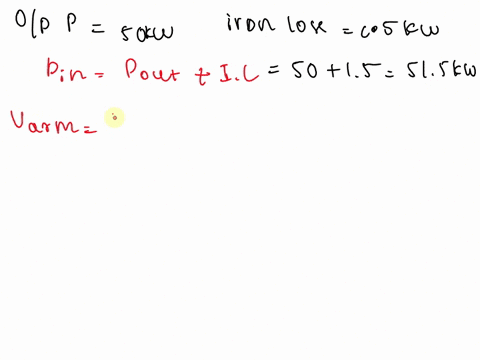 O/p P = 50kW iron loss = 1.5 kW
Pin = Pout + I.L = 50 + 1.5 = 51.5 kW
Varm =